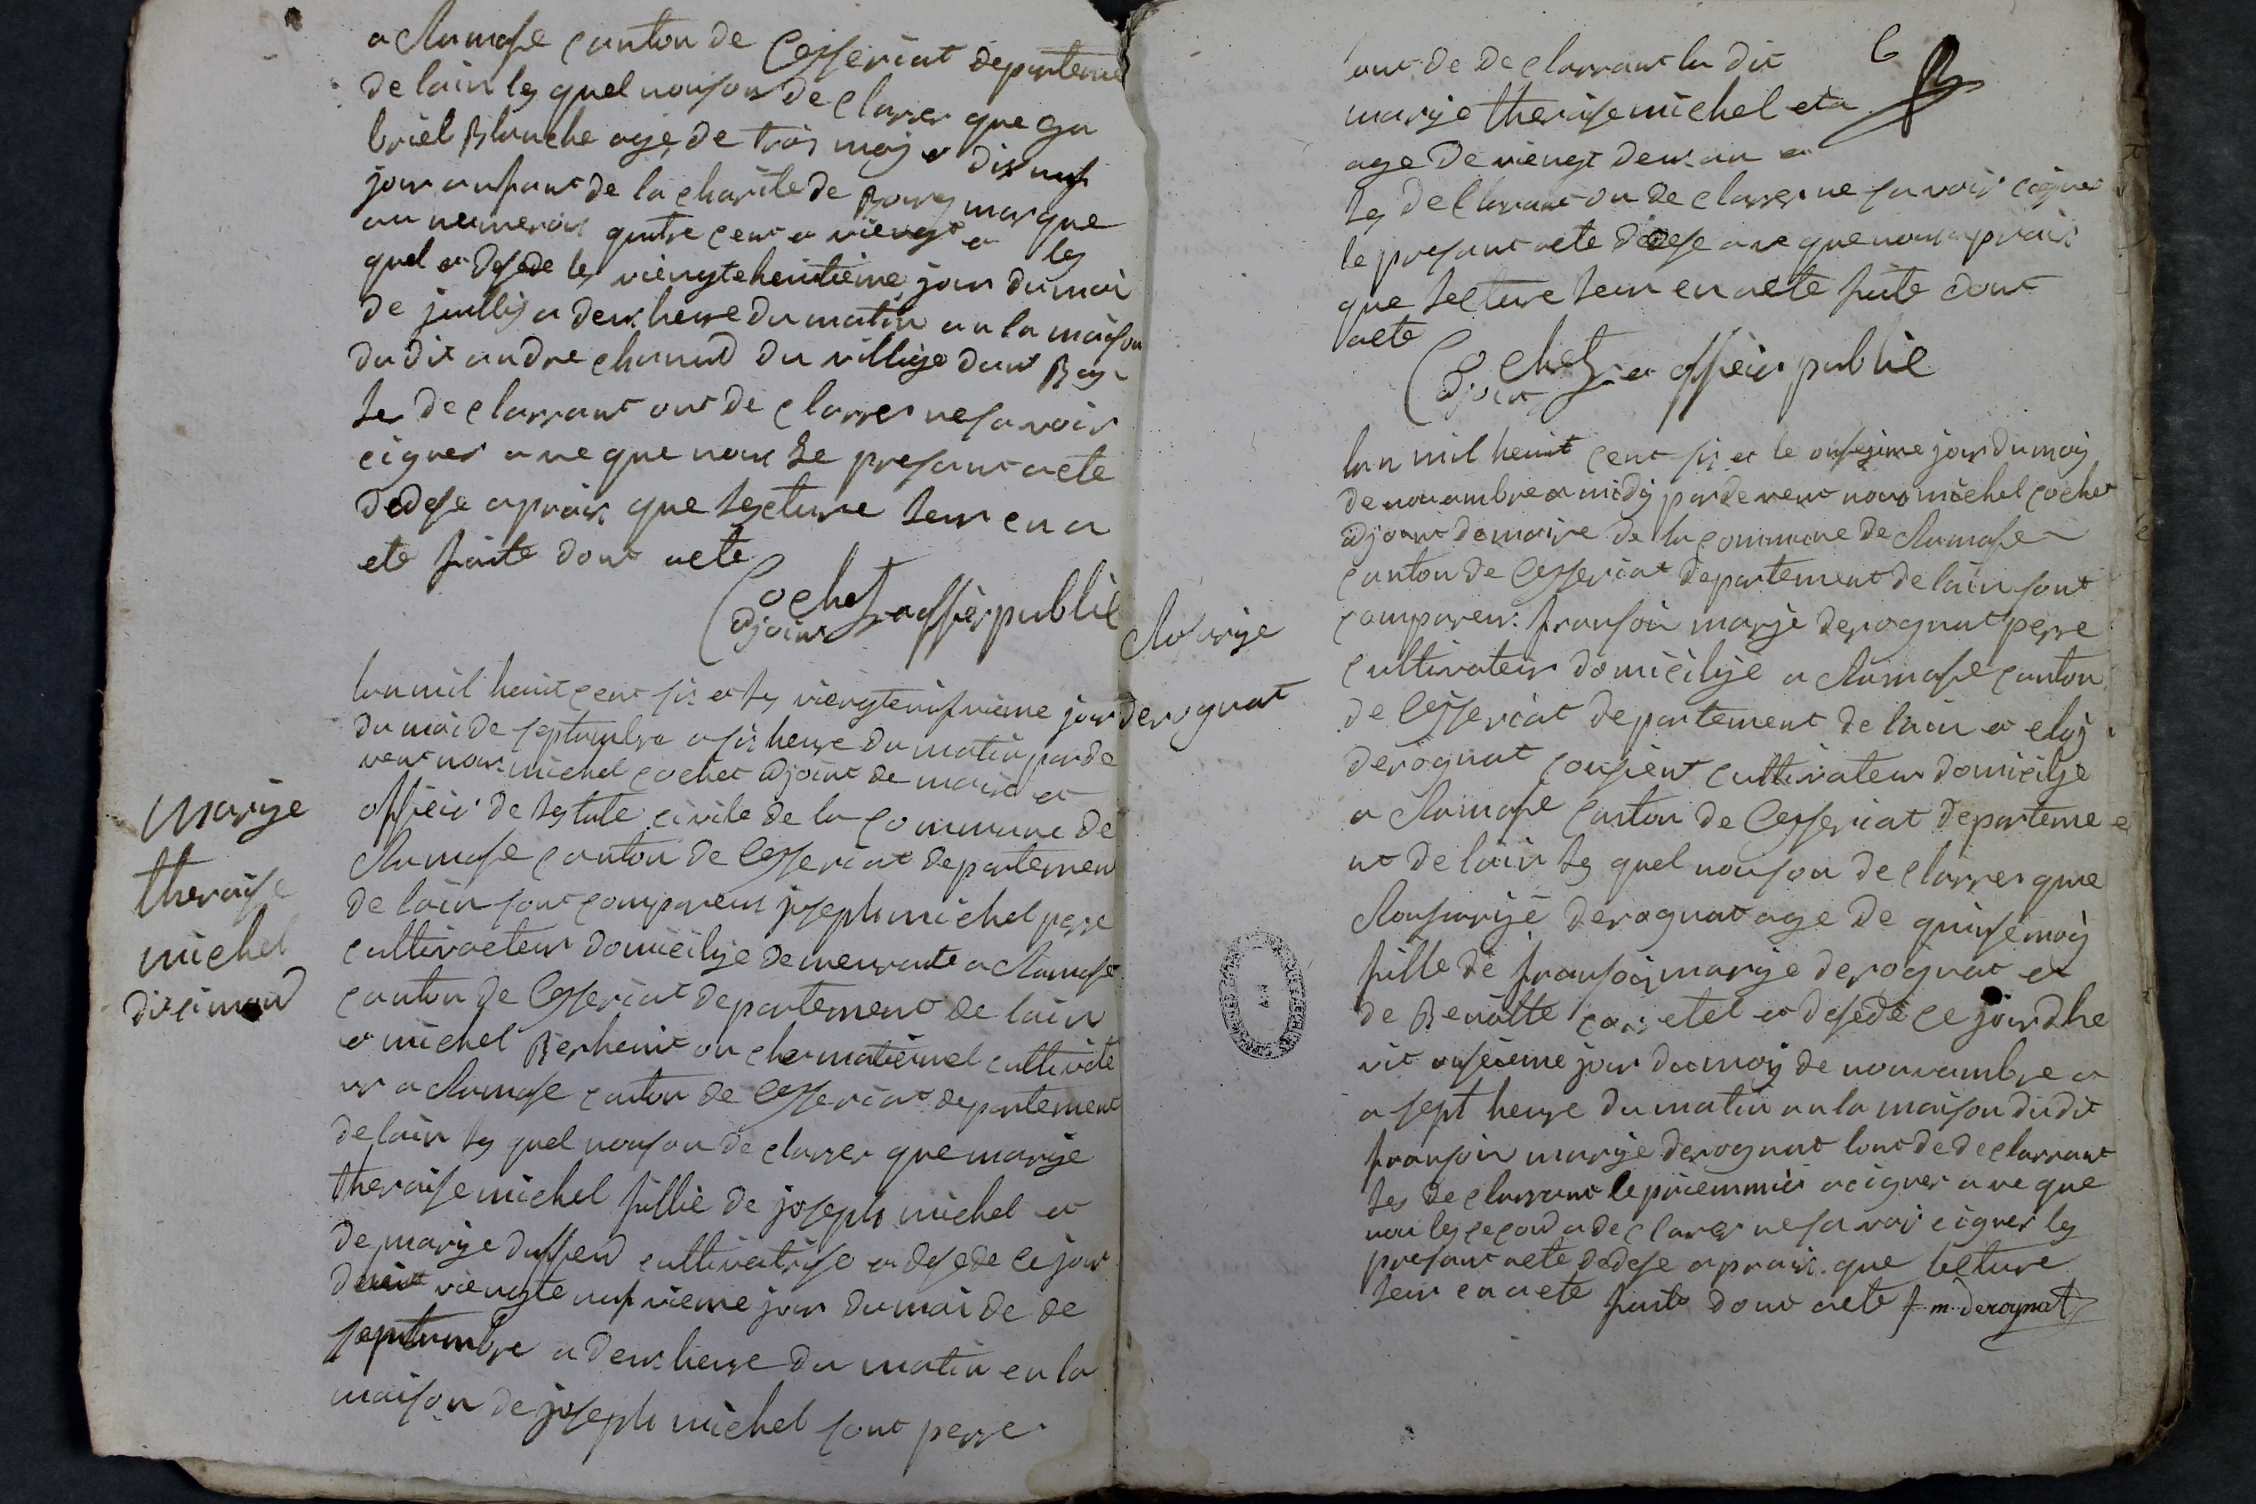 a Ramase canton de Ceyseriat departeme
de lain les quel nouson de clarer que ga
briel Blanche age de trois mois et dix neuf
jour anfant de la charite de Bourg marque
au numerois quatre cent a viengt et les
quel et desede les viengtehuitieme jour du moi
de juillis a deux heure du matin an la maison
du dit andre chanud du village dant Bas
les de clarrant ont de clarrer ne savoir
cigner aveque nous le presant acte
dedese aprais que lecture leur en a
ete faite dont acte
Cochet a offsier public
adjoint
lan mil heuit cent sis et les viengteneufvieme jour
du moi de septambre a sis heure du matin par de
vent nous michel cochet adjoint de maire et
offieir de lestate civile de la commune de
Ramase canton de Ceyseriat departement
de lain sont comparens joseph michel perre
cultivateur domicilye demeurante a Ramase
canton de Ceyseriat departement de lain
et michel Berheint oncle matiernel cultivate
ur a Ramase canton de Ceyseriat departement
de lain les quel nouson de clarer que marye
theraise michel fillie de joseph michel et
de marye duffend cultivatrise a desede ce jour
viengteneufvieme jour du moi de de
septambre a deux heure du matin en la
maison de joseph michel sont perre
Marye
theraise
michel
disimand
6
lunt de de clarrant la dit
marye theraise michel eta
age de viengt deux an et
les de clarant on de clarrer ne savoir cigner
le presant acte dedese aveque nous aprais
que lecture leur en aete faite dont
acte
Cochet et offsieir public
adjoint
Rosarye
derognat
lan mil heuit cent sis et le onsieime jour du mois
de nouambre a midy par de vent nous michel cochet
adjoint demaire de la commune de Ramase
canton de Ceyseriat departement de lain sont
comparens fransois marye derognat perre
cultivateur domicilye a Ramase canton
de Ceyseriat departement de lain et eloy
derognat cousient cultivateur domicilye
a Ramase canton de Ceyseriat departeme
nt de lain les quel nouson de clarrer que
Rousarye derognat age de quinse mois
fille de fransois marye derognat et
de Benoitte coisetel et desede ce jourdhe
uit onsieme jour du mois de nouvambre a
a sept heure du matin an la maison dudit
fransois marye derognat lunt de de clarrant
les de clarrant le priemmier a cigner aveque
nou les second a de clarer ne savoir cigner les
presant acte dedese aprais que lecture
leur en aete faite dont acte f. m. derognat